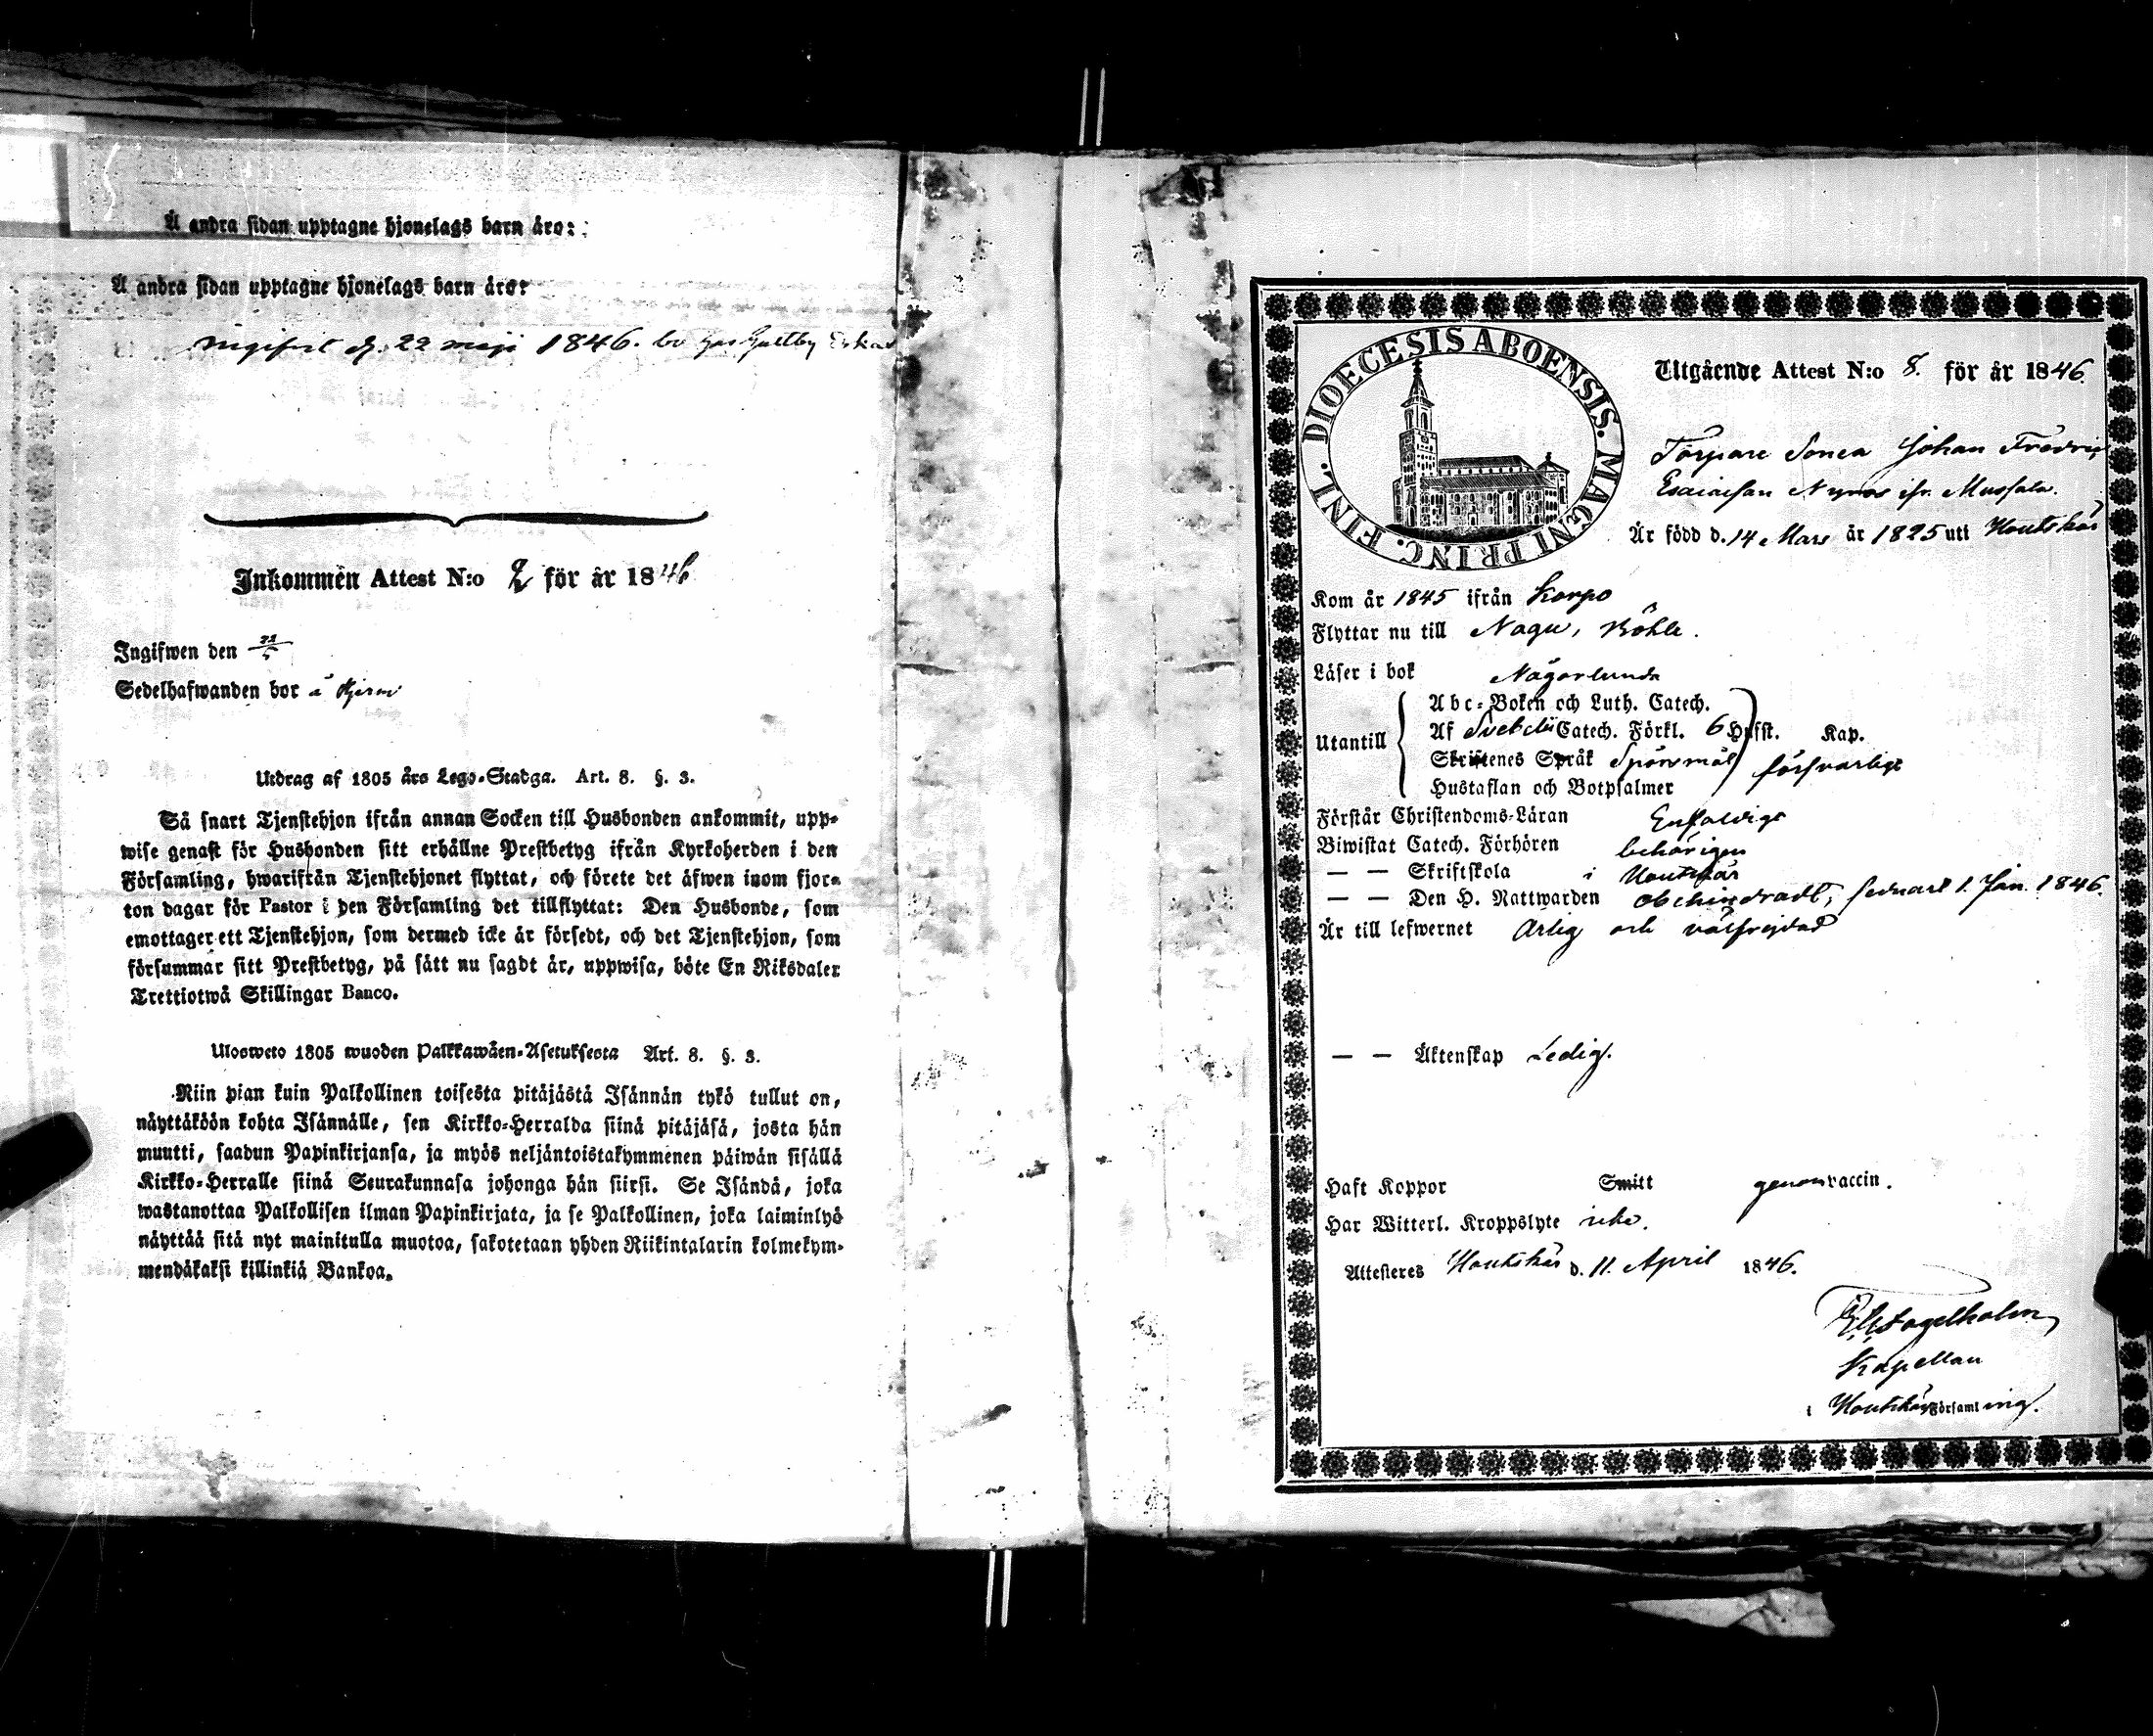 Å andra sidan upptagne hjonelags barn äro:
Å andra sidan upptagne hjonelags barn äro:
ingifvit d. 22 maji 1846. bor
Inkommen Attest N:o 2 för år 1846
Ingifwen den 22/5
Sedelhafwanden bor å
Utdrag af 1805 års Lego-Stadga. Art. 8. §. 3.
Så snart Tjenstehjon ifrån annan Socken till Husbonden ankommit, upp-
wise genast för Husbonden sitt erhållne Prestbetyg ifrån Kyrkoherden i den
Församling, hwarifrån Tjenstehjonet flyttat, och förete det äfwen inom fjor-
ton dagar för Pastor i den Församling det tillflyttat: Den Husbonde, som
emottager ett Tjenstehjon, som dermed icke är försedt, och det Tjenstehjon, som
försummar sitt Prestbetyg, på sätt nu sagdt är, uppwisa, böte En Riksdaler
Trettiotwå Skillingar Banco.
Ulosweto 1805 wuoden Palkkawäen-Asetuksesta Art. 8. §. 3.
Niin pian kuin Palkollinen toisesta pitäjästä Isännän tykö tullut on,
näyttäköön kohta Isännälle, sen Kirkko-Herralda siinä pitäjäsä, josta hän
muutti, saadun Papinkirjansa, ja myös neljäntoistakymmenen päiwän sisällä
Kirkko-Herralle siinä Seurakunnasa johonga hän siirsi. Se Isändä, joka
wastanottaa Palkollisen ilman Papinkirjata, ja se Palkollinen, joka laiminlyö
näyttää sitä nyt mainitulla muotoa, sakotetaan yhden Riikintalarin kolmekym-
mendäkaksi killinkiä Bankoa.
DIOECESIS ABOENSIS. MAGNI PRINC. FINL.
Utgående Attest N:o 8. för år 1846.
Torpare Sonen Johan Fredric
Esaiasson ifr. Mussala.
Är född d. 14 Mars år 1825 uti Houtskär
Kom år 1845 ifrån Korpo
Flyttar nu till Nagu, Böhle.
Läser i bok Någorlunda
Abc-Boken och Luth. Catech.
Af Svebelii Catech. Förkl. 6 Hufst. Kap.
Utantill
Skriftenes Språk Spörsmål försvarligt
Hustaflan och Botpsalmer
Förstår Christendoms-Läran Enfaldigt
Biwistat Catech. Förhören behörigen
— — Skriftskola i Houtskär
— — Den H. Nattwarden obehindradt, sednast 1. Jan. 1846.
Är till lefwernet Ärlig och välfrejdad
— — Äktenskap Ledig.
Haft Koppor Smitt genom vaccin.
Har Witterl. Kroppslyte icke.
Attesteres Houtskär d. 11. April 1846.
Kapellan
i Houtskär Församling.